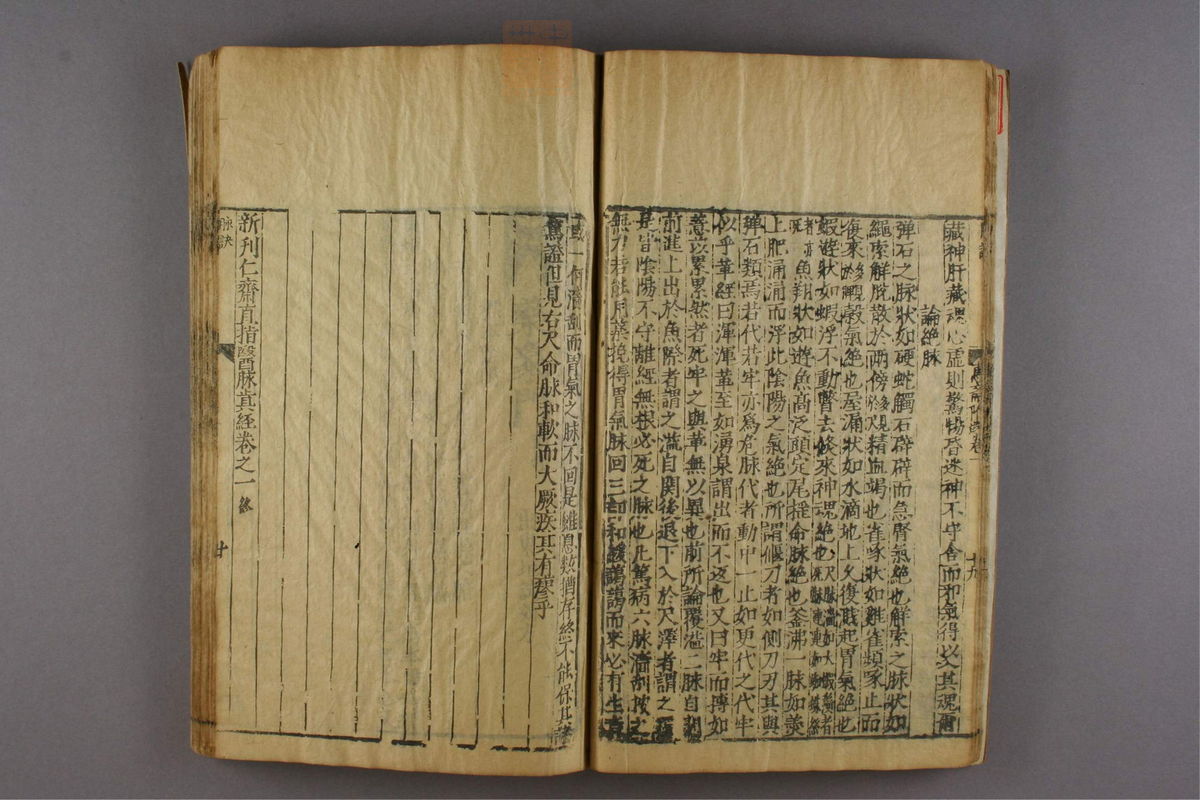 藏神肝藏魂心虛則驚惕昏迷神不守舍而邪氣得以入其魂爾
論絕脉
彈石之脉狀如硬蛇觸石辟辟而急腎氣絕也解索之脉狀如
繩索解脫散於兩傍精血竭也雀啄狀如雞雀頻啄止而
復來穀氣絕也屋漏狀如水滴地上久復濺起胃氣絕也
蝦遊狀如蝦浮不動瞥去倏來神魂絕也
魚翔狀如遊魚高泛頭定尾搖命脉絕也釜沸一脉如羹
上肥涌涌而浮此陰陽之氣絕也所謂偃刀者如側刀刃其與
彈石類焉若代若牢亦為危脉代者動中一止如更代之代牢
似乎革經曰渾渾革至如湧泉謂出而不返也又曰牢而摶如
薏苡累累然者死牢之與革無以異也前所論覆溢二脉自關
前進上出於魚際者謂之溢自關後退下入於尺澤者謂之覆
是皆陰陽不守離經無根必死之脉也凡篤病六脉潛刮按之
無力若能用藥挽得胃氣脉回三部和緩藹藹而來必有生意
或一有潛刮而胃氣之脉不回是雖息數猶存終不能保其
篤證但見右尺命脉和軟而大厥疾其有瘳乎
新刊仁齋直指醫脉真經卷之一 終
脉訣
十